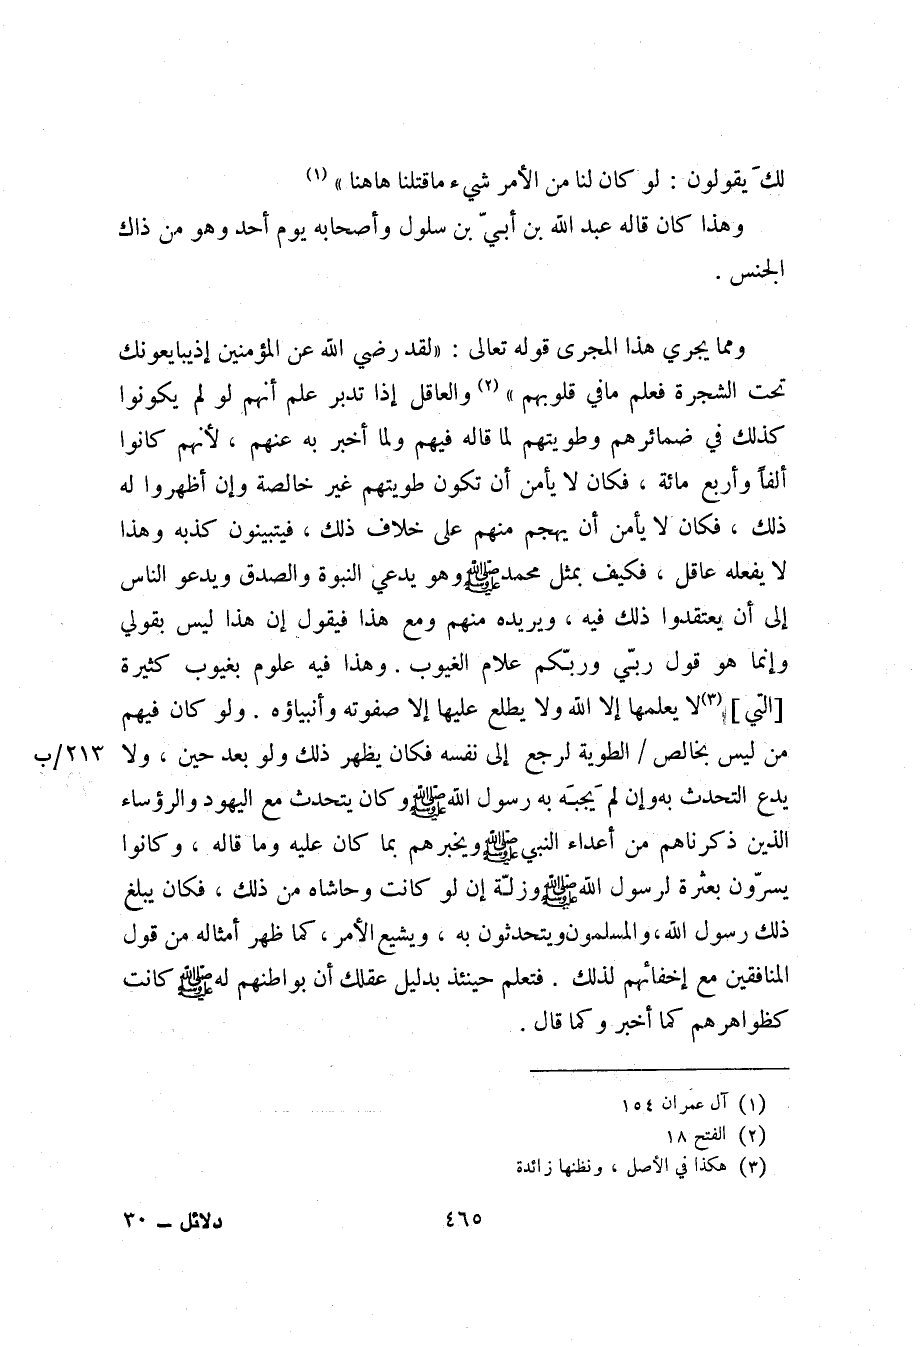 لكَ يقولون : لو كان لنا من الأمر شيء ماقتلنا هاهنا » (١)
وهذا كان قاله عبد الله بن أبيّ بن سلول وأصحابه يوم أحد وهو من ذاك
الجنس .
ومما يجري هذا المجرى قوله تعالى : «لقد رضي الله عن المؤمنين إذيبايعونك
تحت الشجرة فعلم مافي قلوبهم » (٢) والعاقل إذا تدبر علم أنهم لو لم يكونوا
كذلك في ضمائرهم وطويتهم لما قاله فيهم ولما أخبر به عنهم ، لأنهم كانوا
ألفاً وأربع مائة ، فكان لا يأمن أن تكون طويتهم غير خالصة وإن أظهروا له
ذلك ، فكان لا يأمن أن يهجم منهم على خلاف ذلك ، فيتبينون كذبه وهذا
لا يفعله عاقل ، فكيف بمثل محمد ﷺ وهو يدعي النبوة والصدق ويدعو الناس
إلى أن يعتقدوا ذلك فيه ، ويريده منهم ومع هذا فيقول إن هذا ليس بقولي
وإنما هو قول ربّي وربّكم علام الغيوب . وهذا فيه علوم بغيوب كثيرة
[التي] (٣) لا يعلمها إلا الله ولا يطلع عليها إلا صفوته وأنبياؤه . ولو كان فيهم
من ليس بخالص / الطوية لرجع إلى نفسه فكان يظهر ذلك ولو بعد حين ، ولا ٢١٣/ب
يدع التحدث به وإن لم يَجبَه به رسول الله ﷺ وكان يتحدث مع اليهود والرؤساء
الذين ذكرناهم من أعداء النبي ﷺ ويخبرهم بما كان عليه وما قاله ، وكانوا
يسرّون بعثرة لرسول الله ﷺ وزلّة إن لو كانت وحاشاه من ذلك ، فكان يبلغ
ذلك رسول الله، والمسلمون ويتحدثون به ، ويشيع الأمر، كما ظهر أمثاله من قول
المنافقين مع إخفائهم لذلك . فتعلم حينئذ بدليل عقلك أن بواطنهم له ﷺ كانت
كظواهرهم كما أخبر وكما قال .
(١) آل عمران ١٥٤
(٢) الفتح ١٨
(٣) هكذا في الأصل ، ونظنها زائدة
٤٦٥
دلائل ـ ٣٠